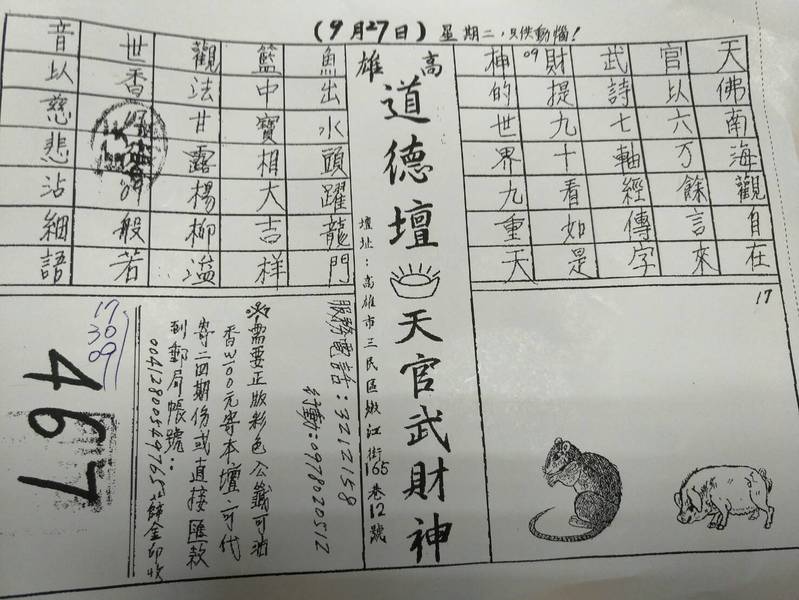 (9月27日)星期二,只供動惱!
天佛南海觀自在
官以六万餘言來
武詩七軸經傳字
財提九十看如是
09
神的世界九重天
17
高雄
道德壇
天官武財神
壇址:高雄市三民區嫩江街165巷12號
魚出水頭躍龍門
籃中寶相大吉祥
觀法甘露楊柳溢
世香
09
般若
音以慈悲沾細語
服務電話:3212158
行動:0978020512
※需要正版彩色公籤可油
香W100元寄本壇,可代
寄二四期份或直接匯款
到郵局帳號:
薛金印收
17
30
09
467